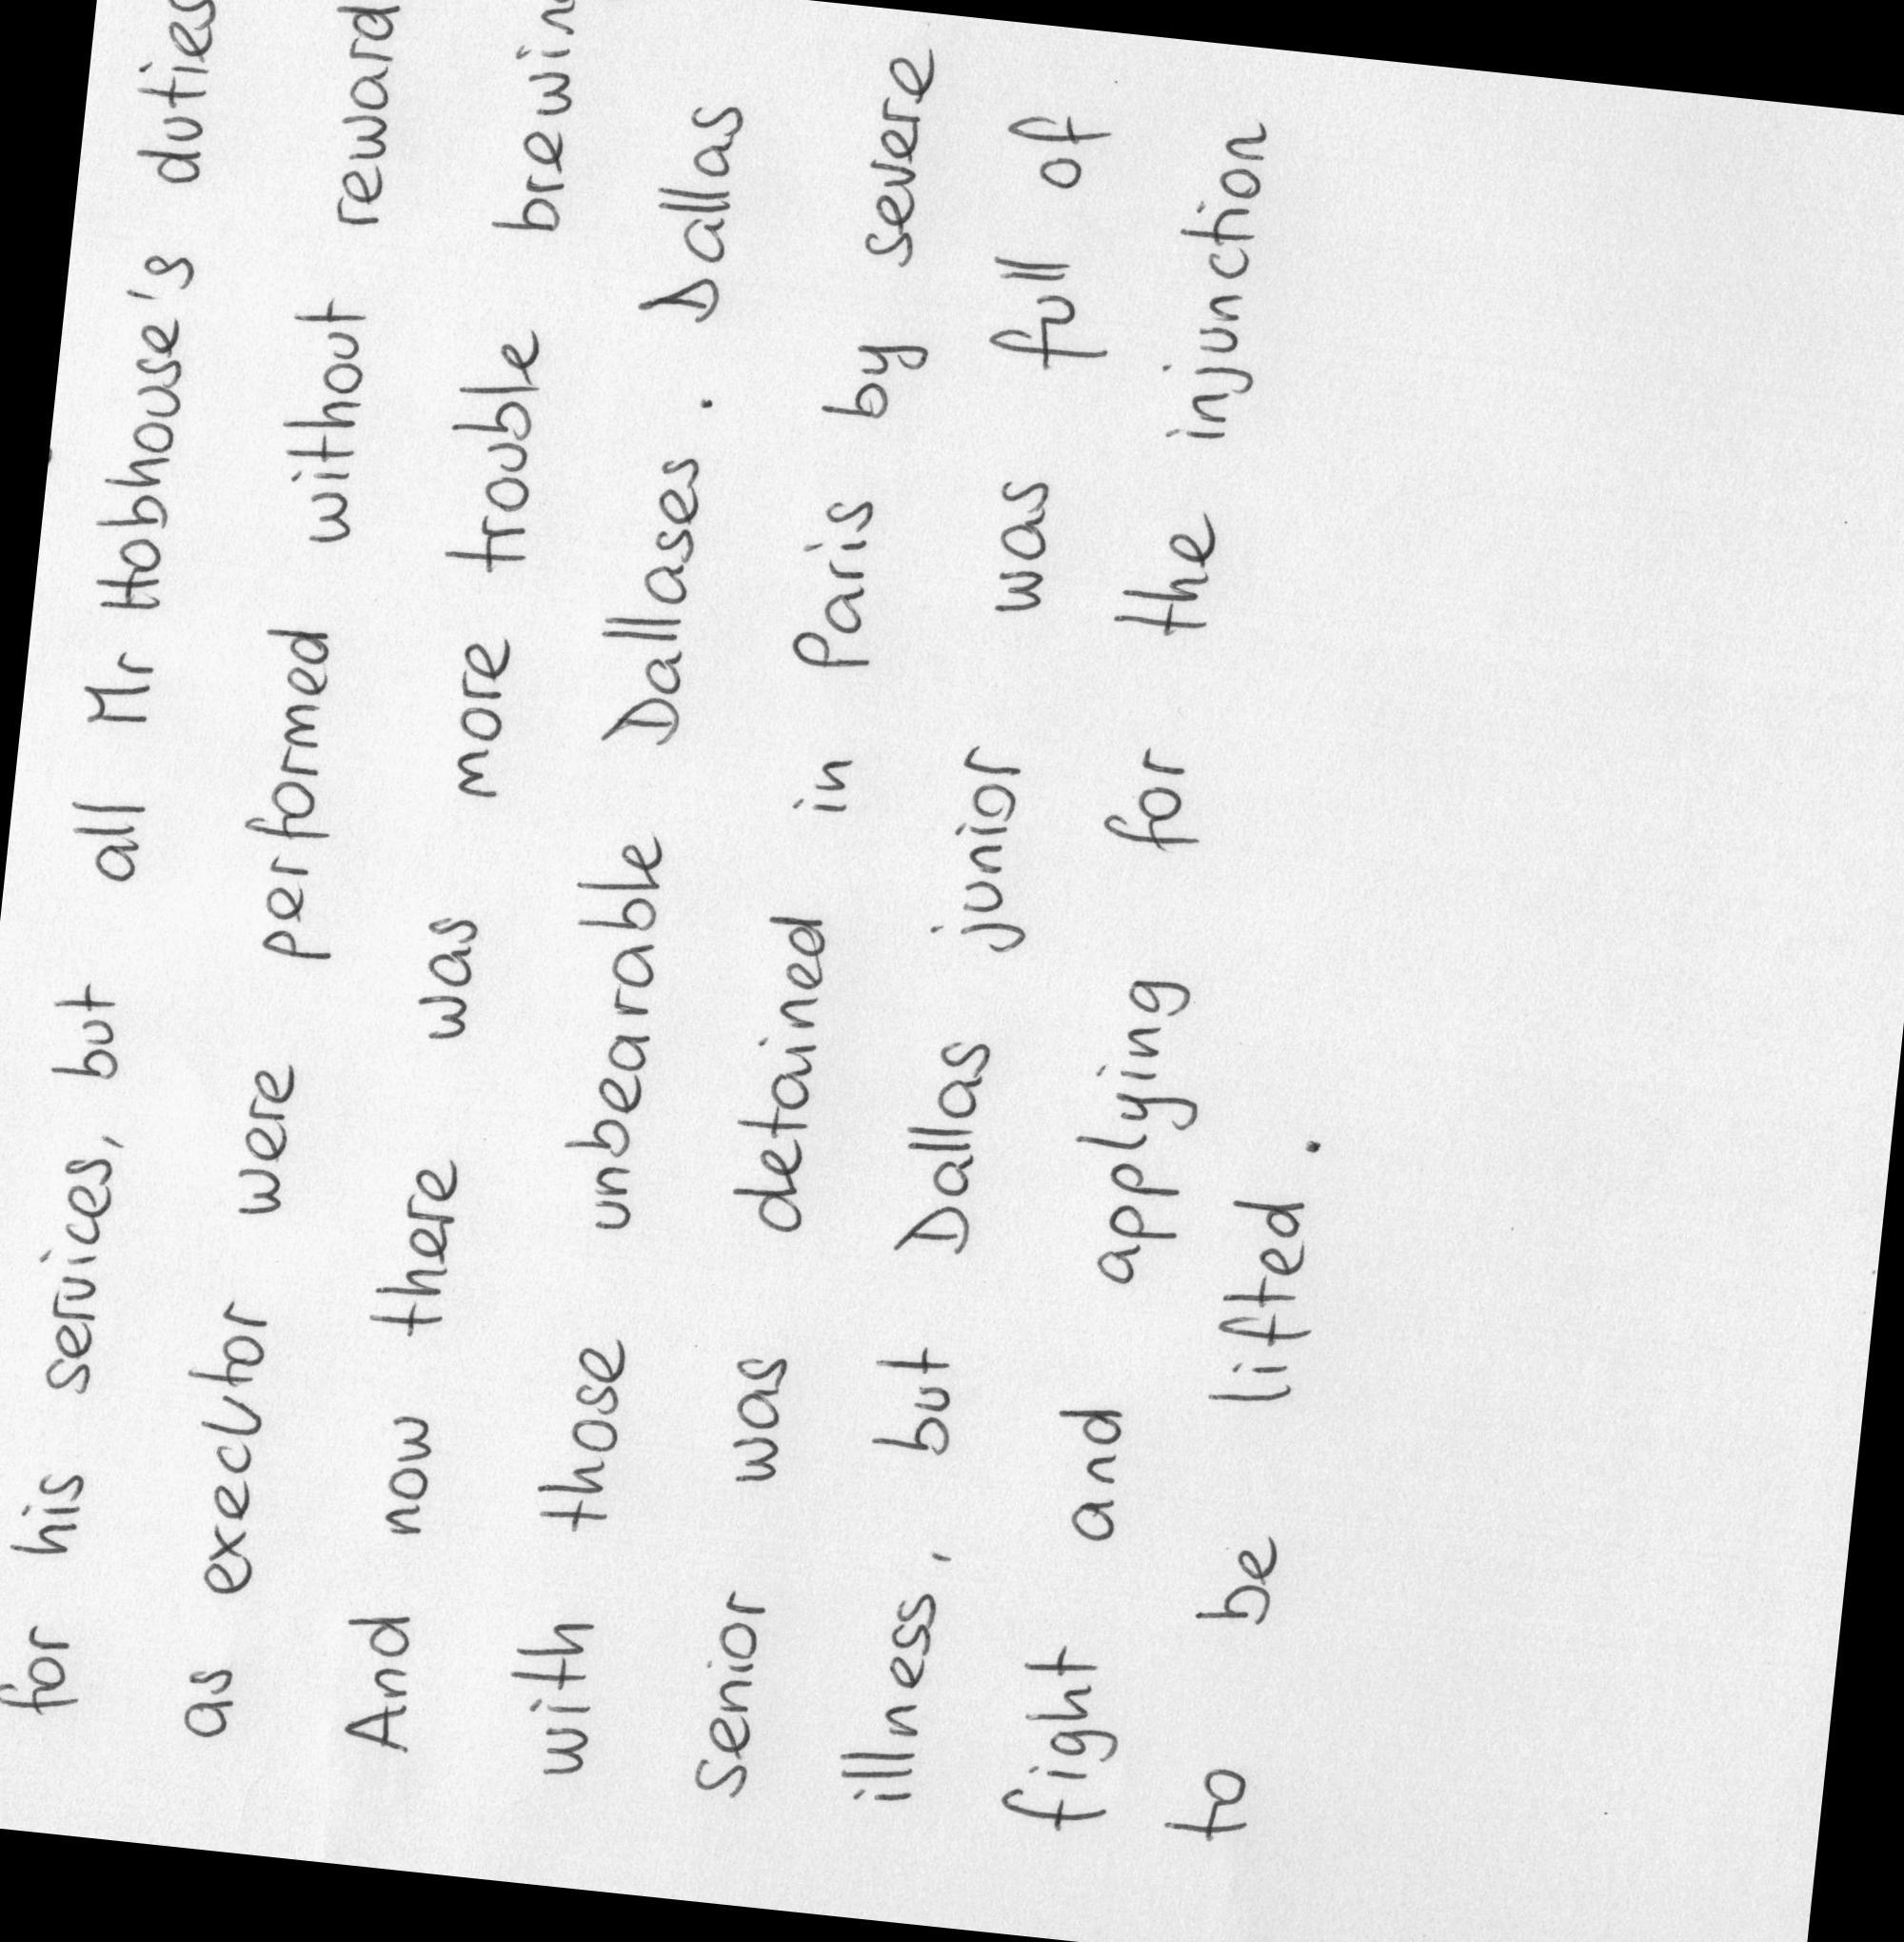 for his services, but all Mr Hobhouse's duties
as executor were performed without reward
And now there was more trouble
with those unbearable Dallases. Dallas
senior was detained in Paris by severe
illness, but Dallas junior was full of
fight and applying for the injunction
to be lifted.